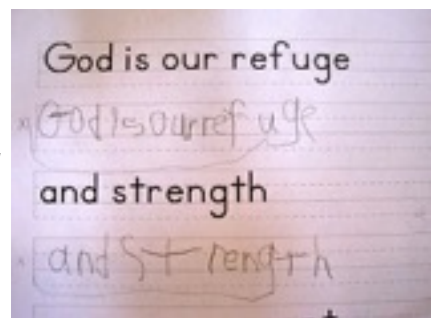 God is our refuge
God is our refuge
and strength
and Strength